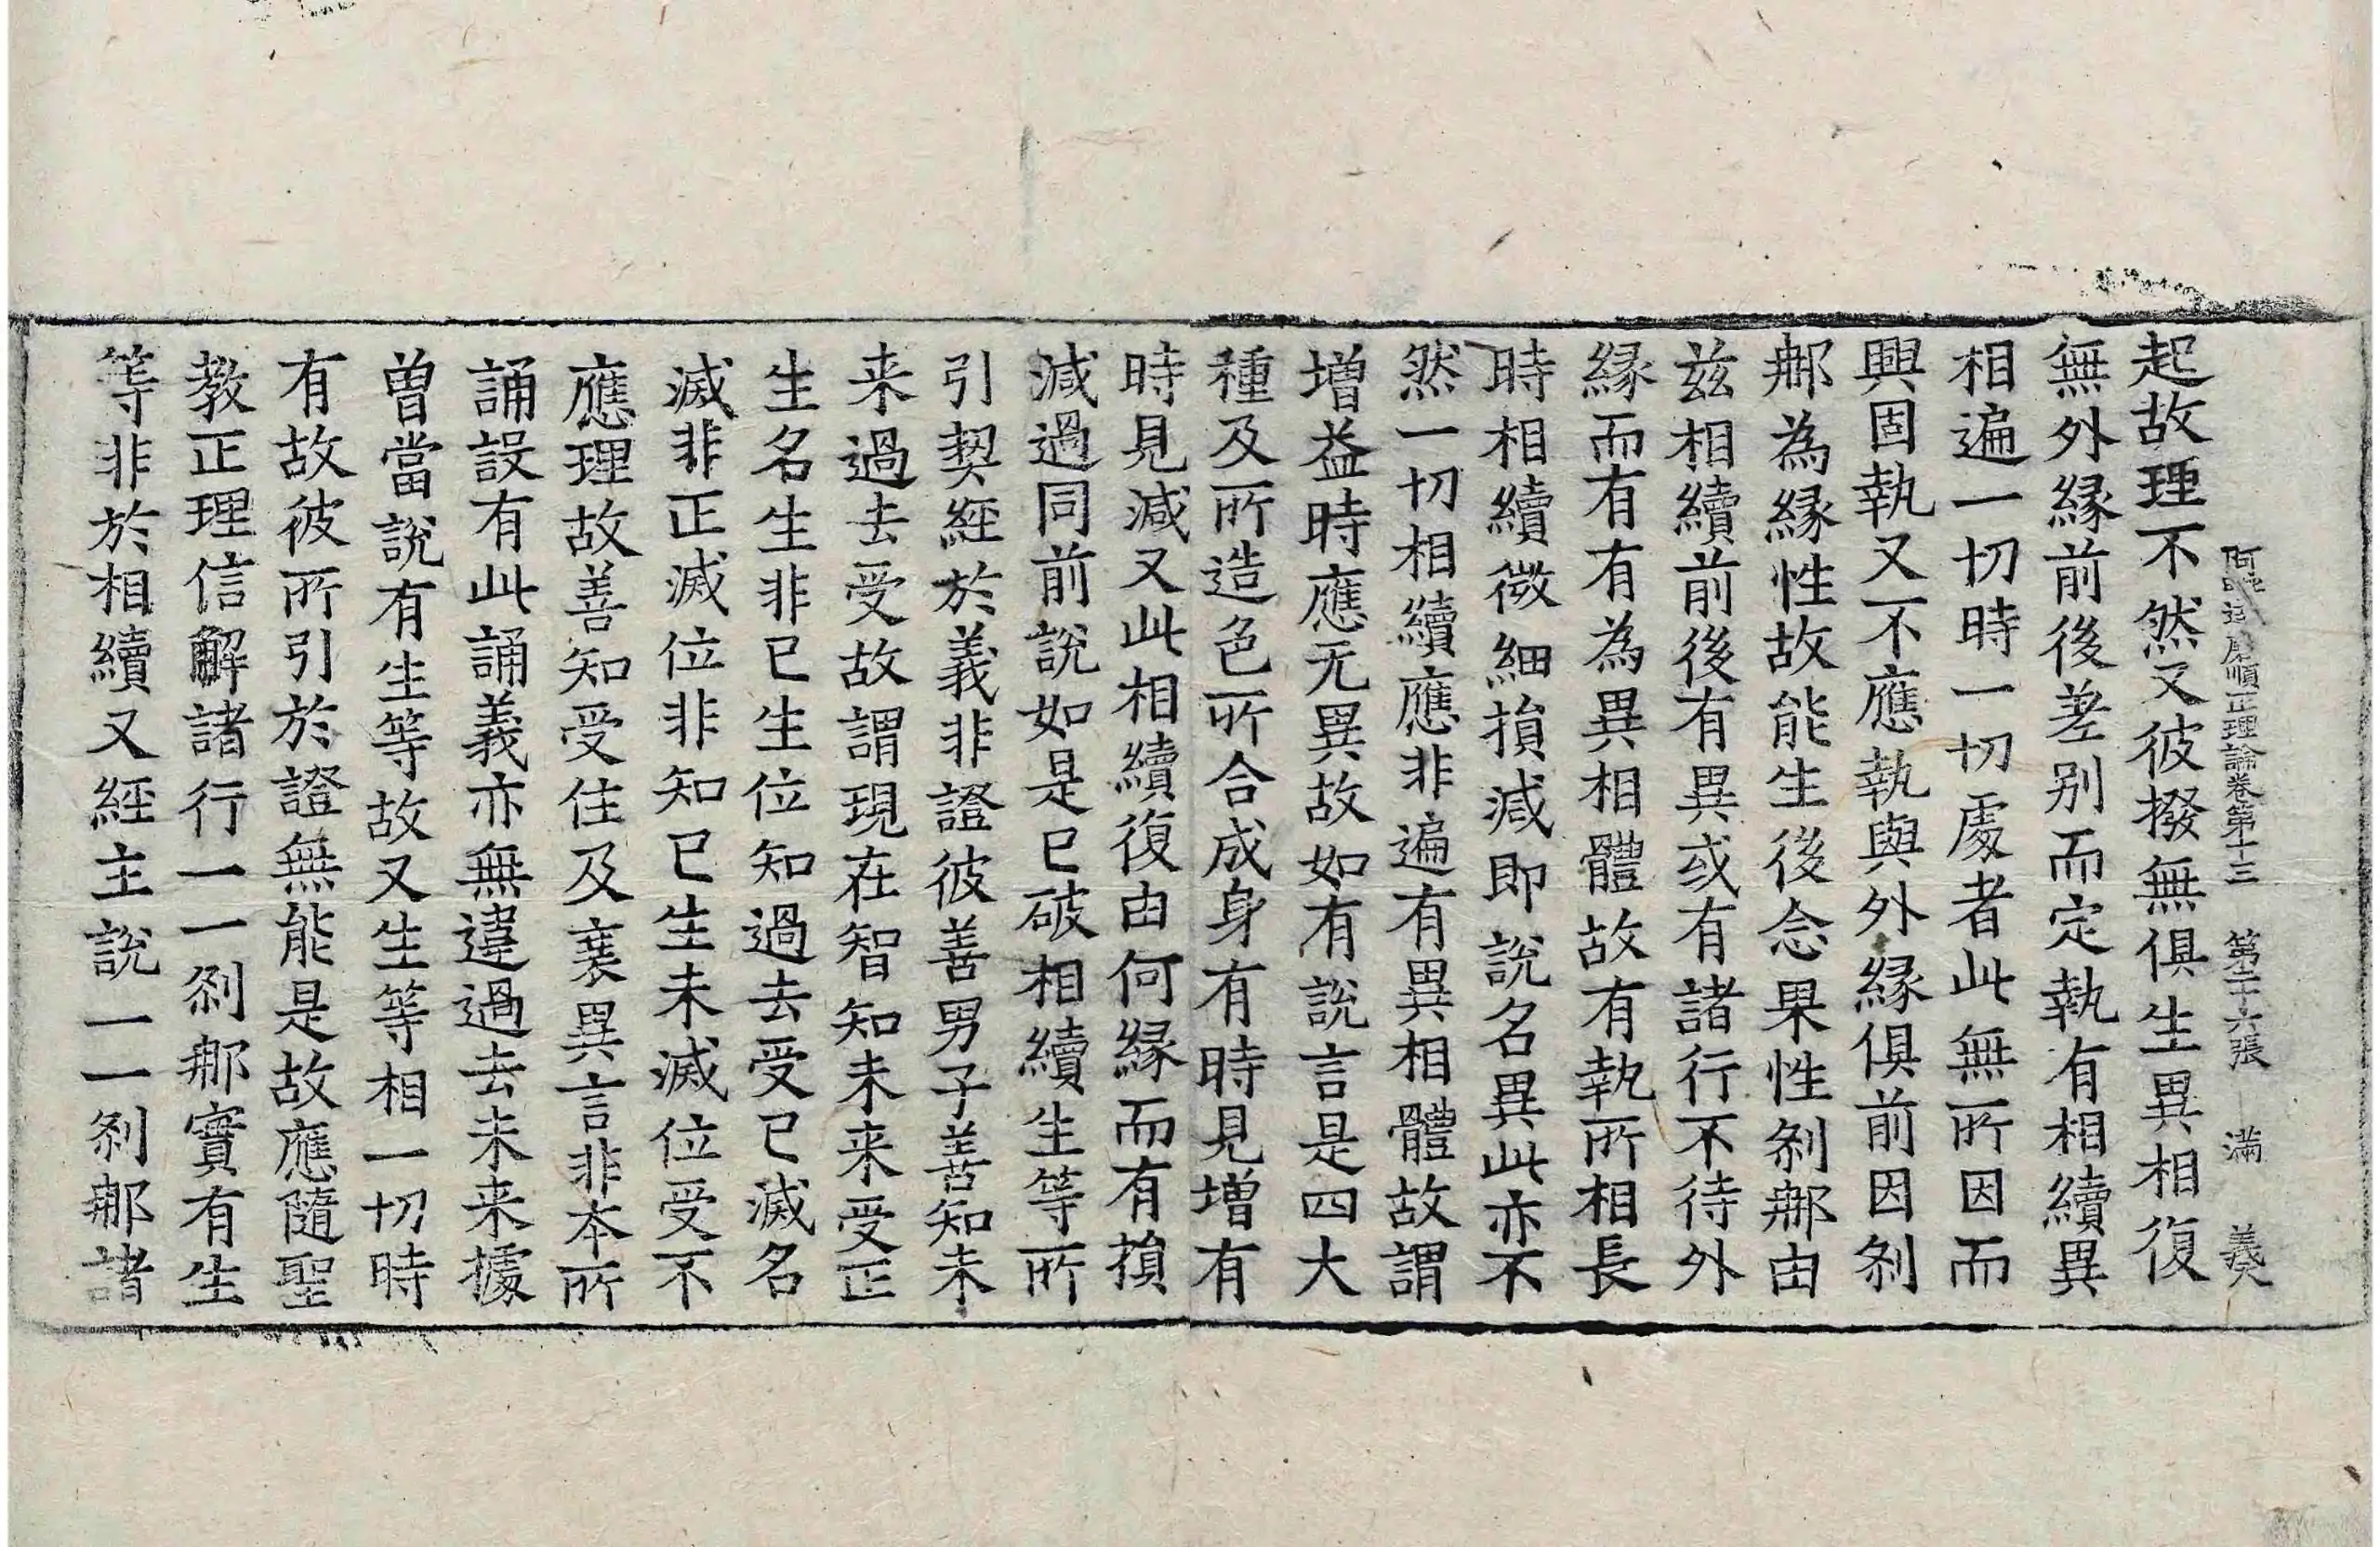 阿毗達磨順正理論卷第十三　第二十六張　満　義
起故理不然又彼撥無俱生異相復
無外緣前後差别而定執有相續異
相遍一切時一切處者此無所因而
興固執又不應執與外緣俱前因刹
那為緣性故能生後念果性刹那由
兹相續前後有異或有諸行不待外
緣而有有為異相體故有執所相長
時相續微細損減即說名異此亦不
然一切相續應非遍有異相體故謂
增益時應无異故如有說言是四大
種及所造色所合成身有時見增有
時見減又此相續復由何緣而有損
減過同前說如是已破相續生等所
引契經於義非證彼善男子善知未
来過去受故謂現在智知未来受正
生名生非已生位知過去受已滅名
滅非正滅位非知已生未滅位受不
應理故善知受住及衰異言非本所
誦設有此誦義亦無違過去未来據
曽當說有生等故又生等相一切時
有故彼所引於證無能是故應隨聖
教正理信解諸行一一刹那實有生
等非於相續又經主說一一刹那諸